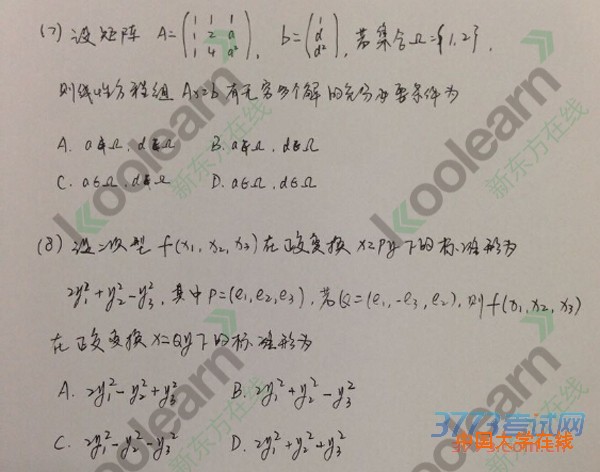 (7) 设矩阵 A=(1 1 1
1 2 a
1 4 a²), b=(1
d
d²), 若集合Ω={1,2},
则线性方程组 Ax=b 有无穷多个解的充分必要条件为
A. a∉Ω, d∉Ω B. a∉Ω, d∈Ω
C. a∈Ω, d∉Ω D. a∈Ω, d∈Ω
(8) 设二次型 f(x₁,x₂,x₃) 在正交变换 x=Py 下的标准形为
2y₁²+y₂²-y₃², 其中 P=(e₁,e₂,e₃), 若 Q=(e₁,-e₃,e₂), 则 f(x₁,x₂,x₃)
在正交变换 x=Qy 下的标准形为
A. 2y₁²-y₂²+y₃² B. 2y₁²+y₂²-y₃²
C. 2y₁²-y₂²-y₃² D. 2y₁²+y₂²+y₃²
koolearn
新东方在线
koolearn
新东方在线
koolearn
新东方在线
3773考试网
中国大学在线